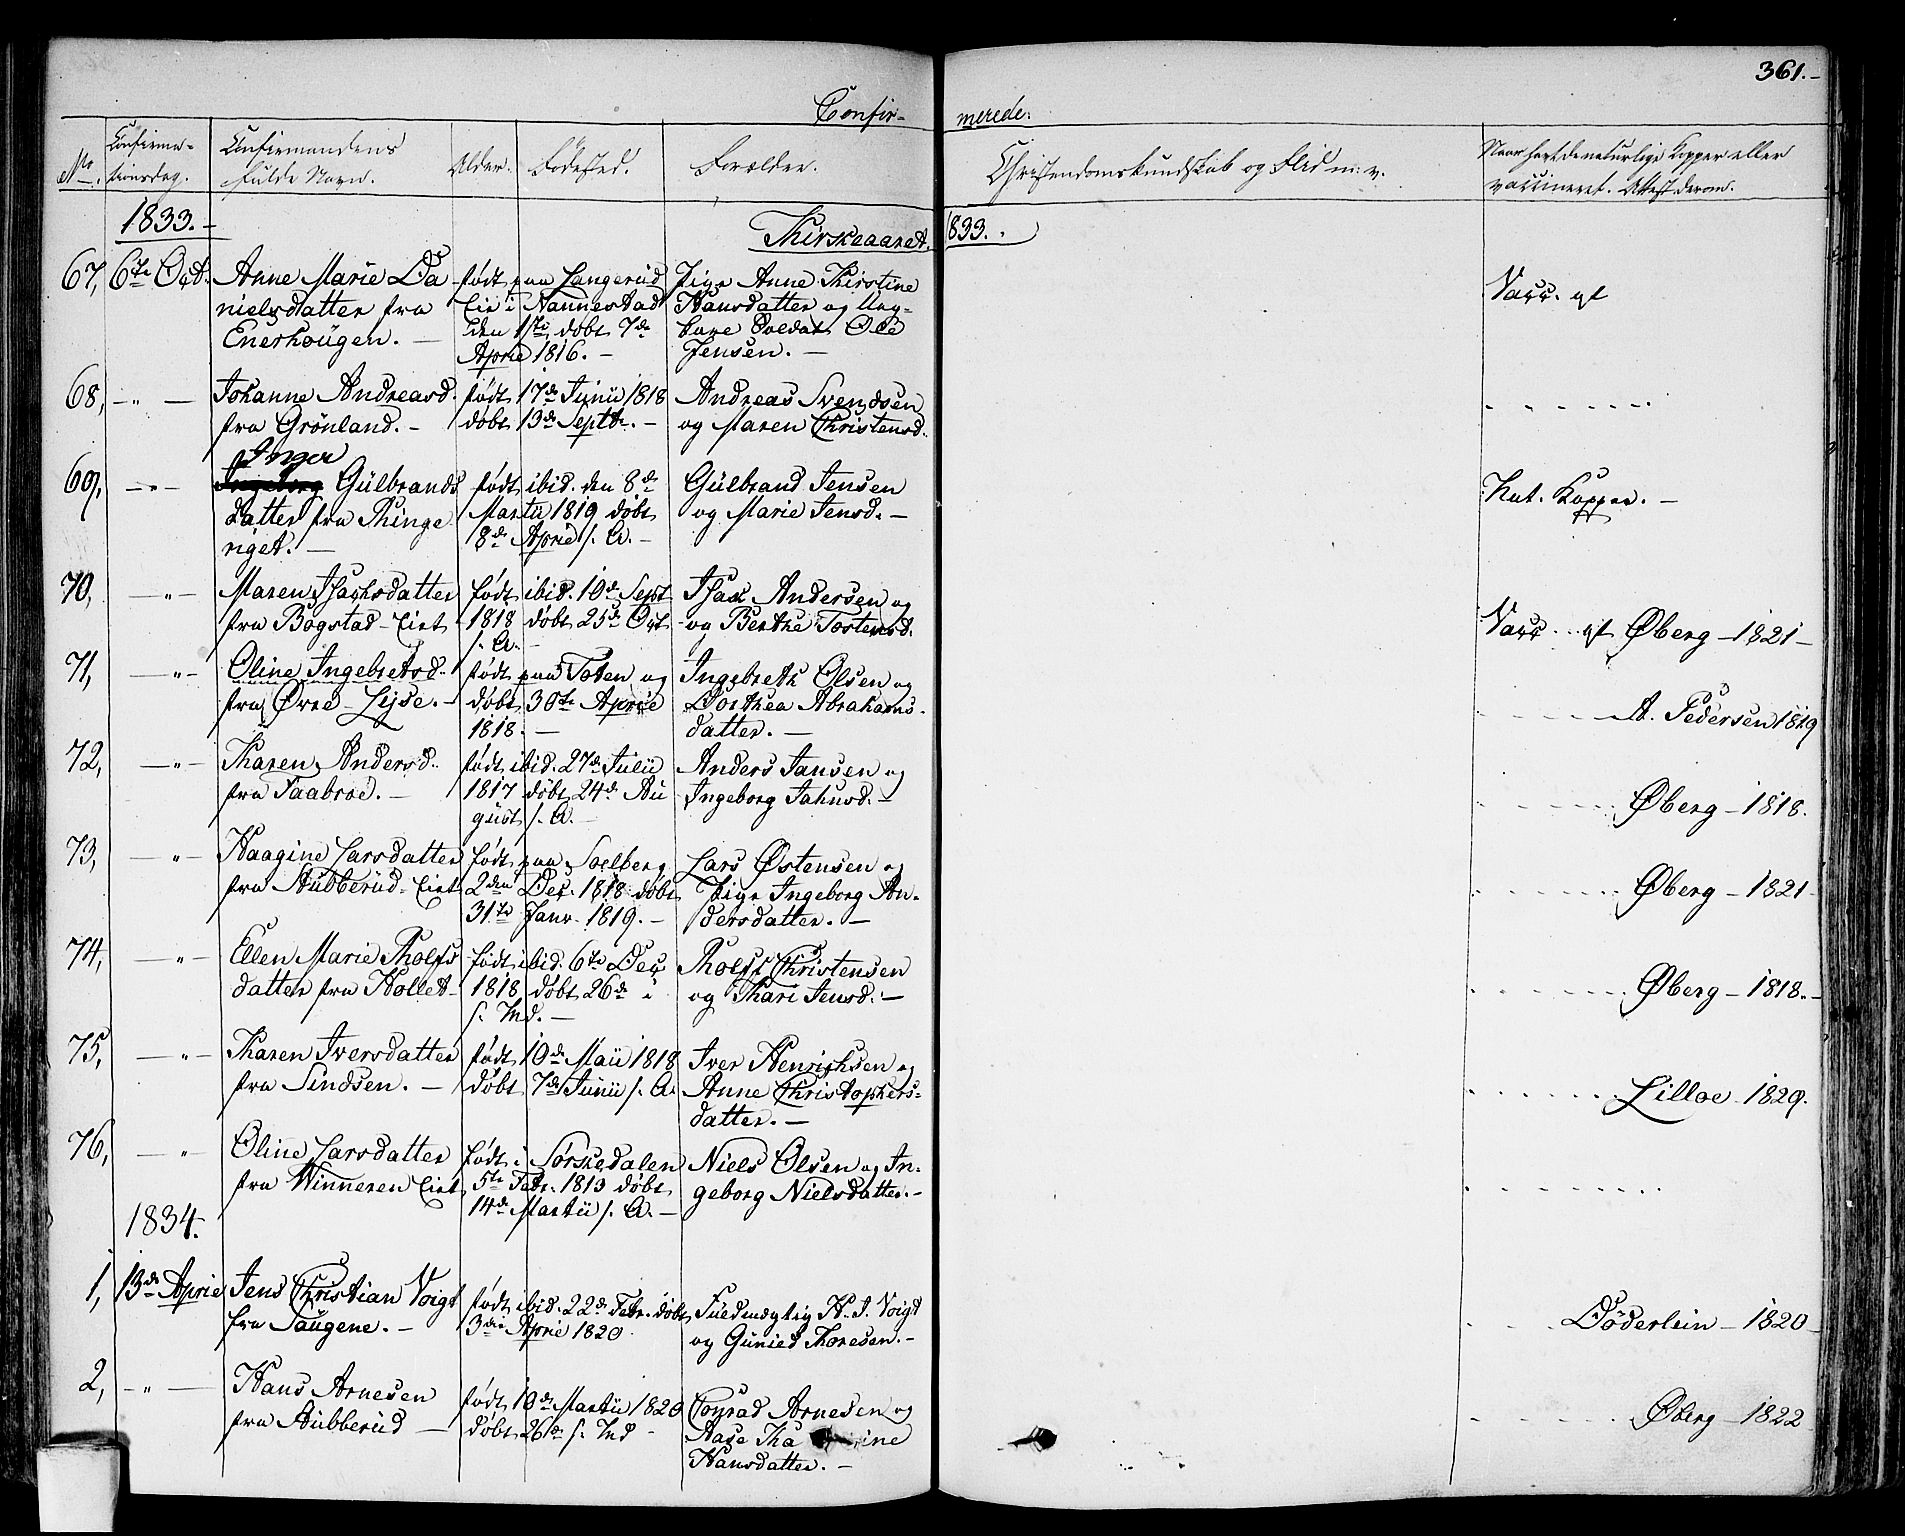 361.-
Confir- merede:
No. Confirma- Confirmandens Alder. Fødested. Forældre. Christendomskundskab og Flid m: v. Naar havt de naturlige Kopper eller
tionsdag. fulde Navn. vaccineret. Attest derom.
1833.- Kirkeaaret 1833.
67, 6te Oct. Anne Marie Da født paa Langerud Pige Anne Kirstine Vacc. af
nielsdatter fra Eie i Nannestad Hansdatter og Ung-
Enerhougen. - den 1ste, døbt 7de kare Soldat Ole
April 1816. - Jensen. -
68, -"- Johanne Andreasd. født 17de Junii 1818 Andreas Svendsen - - - - - -
fra Grönland. - døbt 13de Septbr. - og Maren Christensd.
Inger
69, -"- Ingeborg Gulbrands født ibid. den 8de Gulbrand Jensen Nat. Kopper. -
datter fra Ringe Martii 1819 døbt og Marie Jensd. -
riget. - 18de April s. A. -
70, -"- Maren Isachsdatter født ibid. 10de Sept Isak Andersen og
fra Bogstad-Eiet 1818 døbt 25de Oct og Berthe Tostensd. Vacc. af Øberg - 1821 -
s. A. -
71, -"- Oline Ingebretsd. født paa Toten og Ingebreth Olsen og
fra Øvre-Lyse. - døbt 30te April Dorthea Abrahams- - - - - A. Pedersen 1819
1818. - datter. -
72, -"- Karen Andersd. født ibid. 27de Julii Anders Jansen og
fra Taabroe. - 1817 døbt 24de Au Ingeborg Jahnsd. - - - - - Øberg - 1818.
gust s. A. -
73, -"- Haagine Larsdatter født paa Soelberg Lars Østensen og
fra Aubberud-Eiet 2den Dec. 1818 døbt Pige Ingeborg An- - - - - Øberg - 1821 -
31te Janr. 1819. - dersdatter. -
74, -"- Ellen Marie Tholfs født ibid. 6te Dec Tholff Christensen
datter fra Hollet- 1818 døbt 26de i og Kari Jensd. - - - - - Øberg - 1818. -
s. Md. -
75, -"- Karen Iversdatter født 10de Maii 1818 Iver Henrichsen og
fra Sindsen. - døbt 7de Junii s. A. Anne Christophers- - - - - Lilloe - 1829.
datter. -
76, -"- Oline Larsdatter født i Sørkedalen Niels Olsen og In-
fra Winneren Eiet 5te Febr. 1813 døbt geborg Nielsdatter. - - - - - - -
14de Martii s. A. -
1834.
1, 13de April Jens Christian Voigt født ibid. 22de Febr. døbt Fuldmægtig H. J. Voigt
fra Saugene. - 3die April 1820. og Gunild Thoresen. - - - Döderlein - 1820 -
2, -"- Hans Arnesen født 10de Martii 1820 Conrad Arnesen og
fra Aubberud - døbt 26de s. Md - Aase - - - - Øberg - 1822
Hansdatter. -